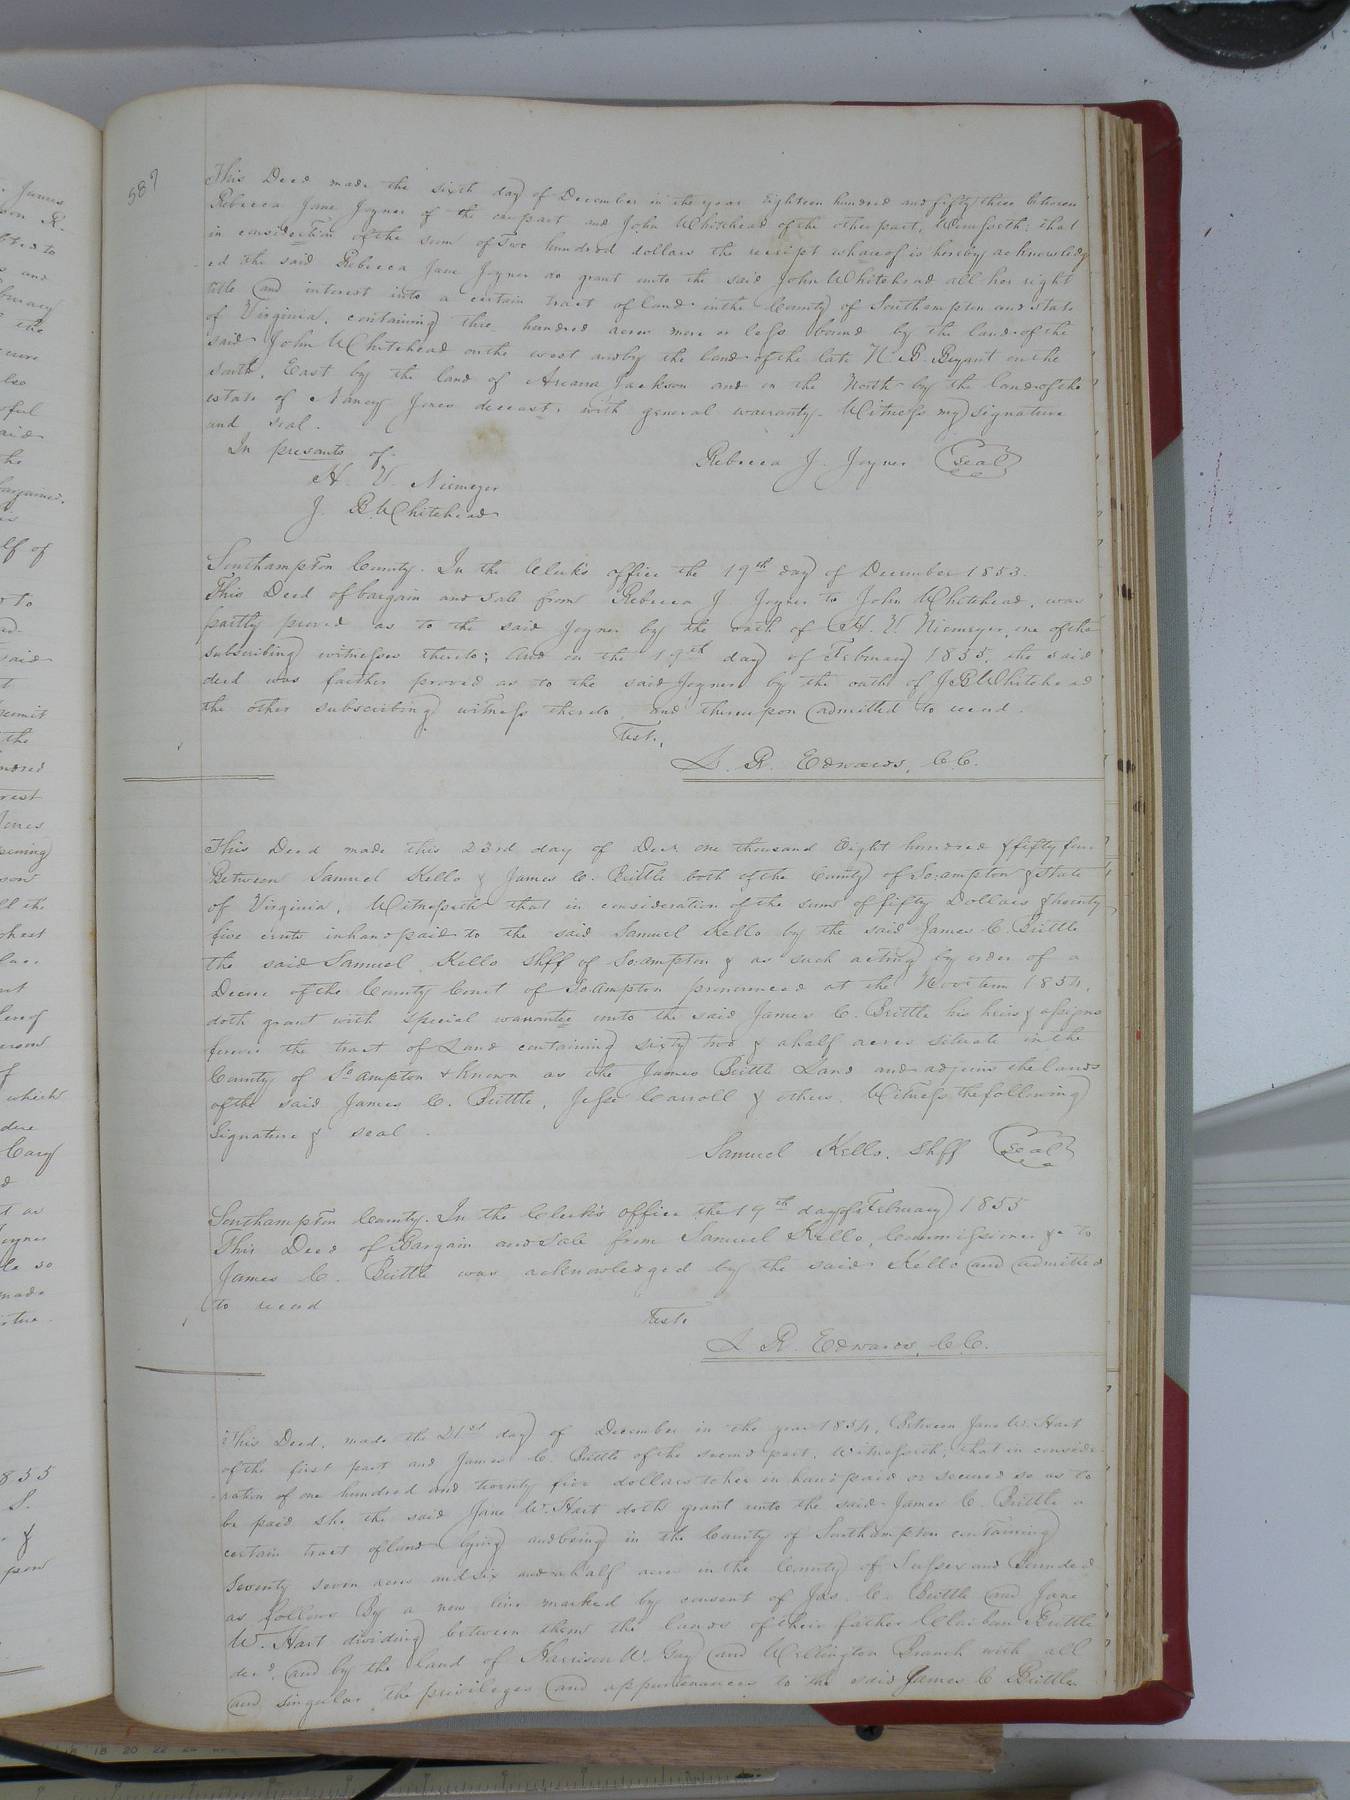 587
This Deed made the sixth day of December in the year Eighteen hundred and fifty three between
Rebecca Jane Joyner of the one part and John Whitehead of the other part, Witnesseth: that
in consideration of the sum of Two hundred dollars the receipt whereof is hereby acknowledg
ed the said Rebecca Jane Joyner do grant unto the said John Whitehead all her right
title and interest into a certain tract of land in the County of Southampton and state
of Virginia, containing three hundred acres more or less bound by the land of the
said John Whitehead on the west and by the land of the late N. B. Bryant on the
South, East by the land of Arcana Jackson and on the North by the land of the
estate of Nancy Jones deceast, with general warranty. Witness my signature
and seal.
In presants of
Rebecca J. Joyner (seal)
H. V. Niemeyer
J. B. Whitehead
Southampton County. In the Clerk's office the 19th day of December 1853.
This Deed of bargain and sale from Rebecca J Joyner to John Whitehead, was
partly proved as to the said Joyner by the oath of H. V. Niemeyer, one of the
subscribing witnesses thereto; And on the 19th day of February 1855, the said
deed was farther proved as to the said Joyner by the oath of J. B. Whitehead
the other subscribing witness thereto, and thereupon admitted to record.
Test,
L. R. Edwards, C.C.
This Deed made this 23rd day of Decr. one thousand Eight hundred & fifty four
Between Samuel Kello & James C. Brittle both of the County of So.ampton & State
of Virginia, Witnesseth that in consideration of the sum of fifty Dollars & twenty
five cents in hand paid to the said Samuel Kello by the said James C. Brittle
the said Samuel Kello Shff of So.ampton & as such acting by order of a
Decree of the County Court of So.ampton pronounced at the Nov. term 1854,
doth grant with special warantee unto the said James C. Brittle his heirs & assigns
forever the tract of Land containing sixty two & a half acres situate in the
County of So.ampton & known as the James Brittle Land and adjoins the lands
of the said James C. Brittle, Jesse Carroll & others. Witness the following
Signature & seal.
Samuel Kello, Shff (seal)
Southampton County. In the Clerk's office the 19th day of February 1855
This Deed of Bargain and Sale from Samuel Kello, Commissioner &c to
James C. Brittle was acknowledged by the said Kello and admitted
to record
Test.
L R. Edwards, C.C.
This Deed, made the 21st day of December in the year 1854, Between Jane W. Hart
of the first part and James C. Brittle of the second part, Witnesseth, that in conside-
ration of one hundred and twenty five dollars to her in hand paid or secured so as to
be paid she the said Jane W. Hart doth grant unto the said James C. Brittle a
certain tract of land lying and being in the County of Southampton containing
Seventy seven acres and six and a half acres in the County of Sussex and Bounded
as follows By a new line marked by consent of Jas. C. Brittle and Jane
W. Hart dividing between them the lands of their father Claiban Brittle
decd. and by the land of Harrison W. Gay and Wellington Branch with all
and singular the privileges and appurtenances to the said James C Brittle